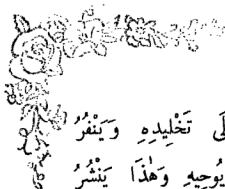 ـلَى تَخْلِيدِهِ وَيَنْفُرُ
يُوحِيهِ وَهٰذَا يَنْشُرُ